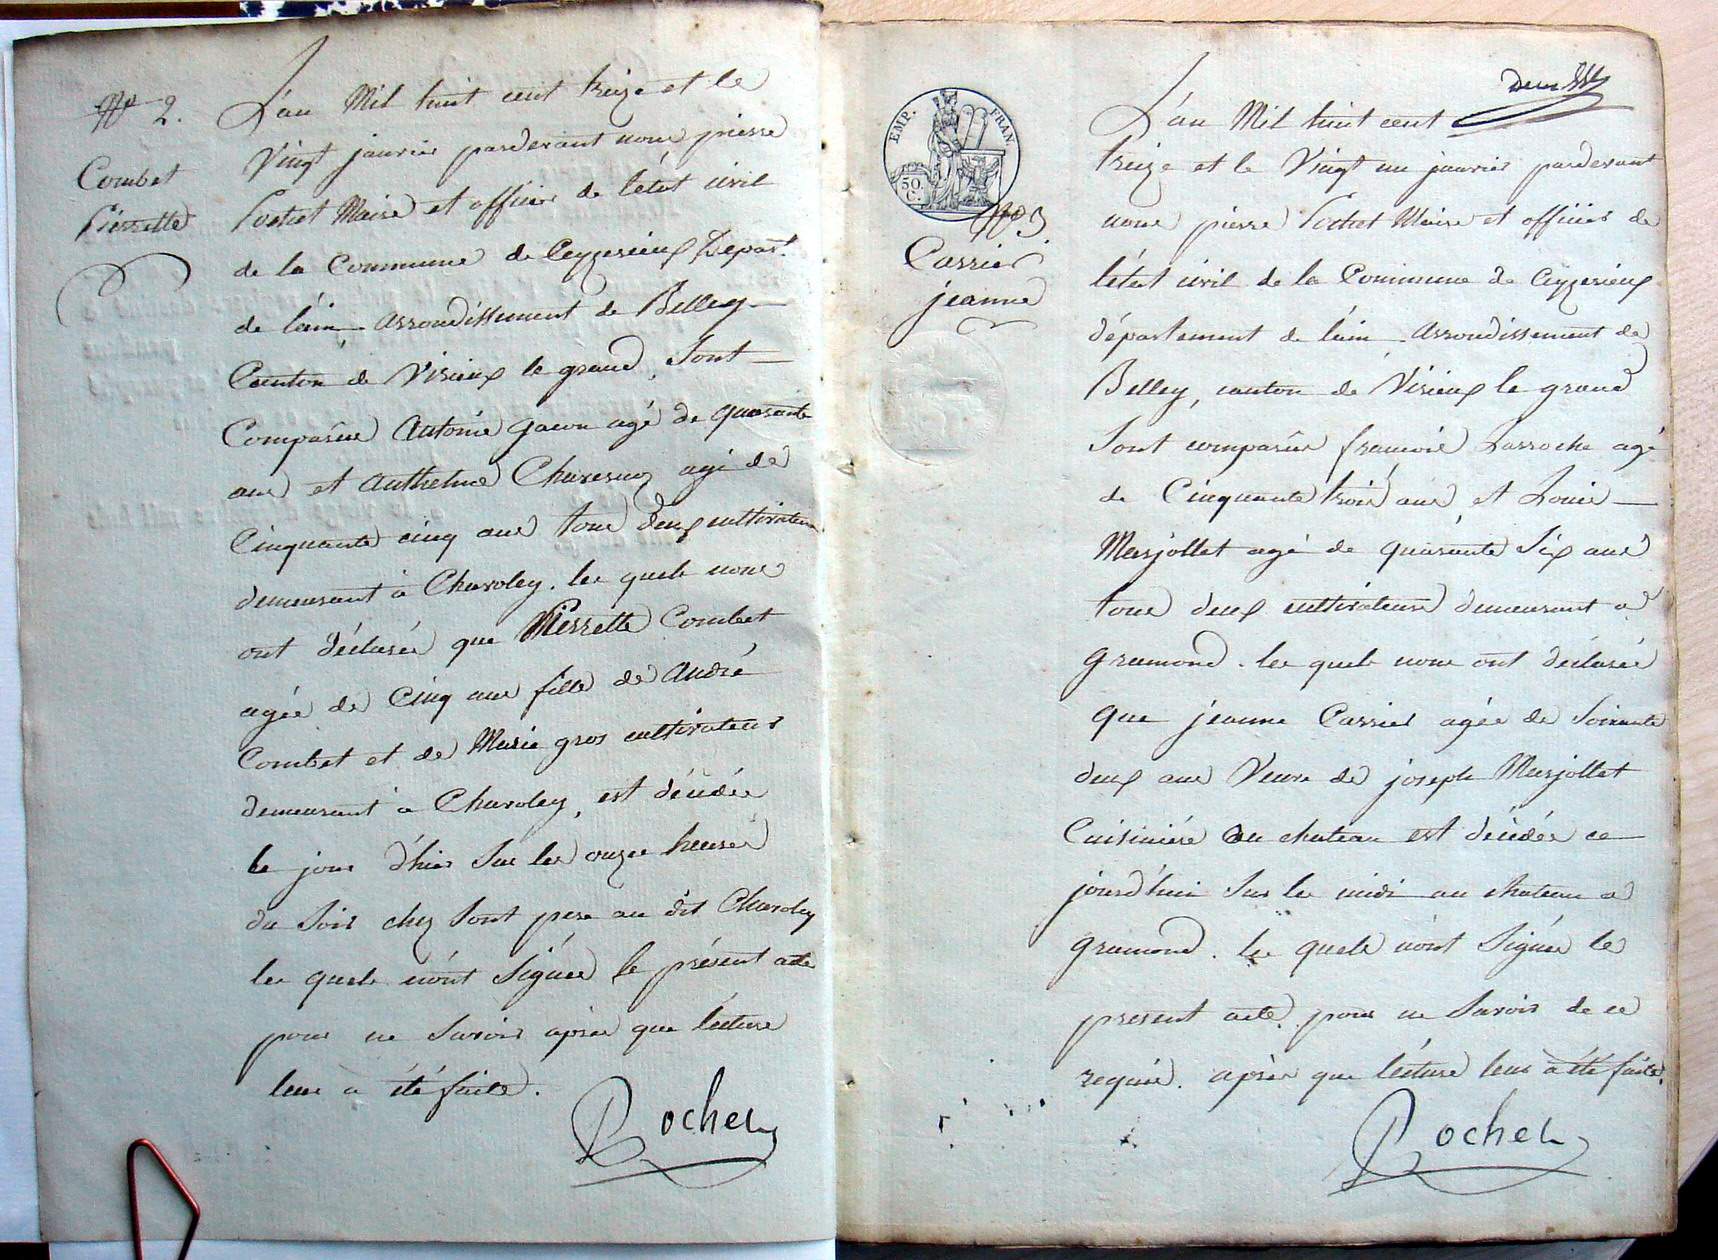 N° 2.
Combet
Pierrette
L'an Mil huit cent treize et le
Vingt janvier pardevant nous pierre
Rochet Maire et officier de l'état civil
de la Commune de Ceyzerieux Depart.t
de l'ain arrondissement de Belley
Canton de Virieux le grand, Sont
Comparûs Antoine gacon agé de quarante
ans et Anthelme agé de
Cinquante cinq ans tous deux cultivateurs
demeurant à Charoley. les quels nous
ont déclarés que Pierrette Combet
agée de Cinq ans fille de André
Combet et de Marie gros cultivateurs
demeurant a Charoley, est décédée
le jour d'hier Sur les onzes heures
du Soir chez Sont pere au dit Charoley
les quels n'ont Signés le présent acte
pour ne Savoir après que lécture
leur à été faite.
Rochet
EMP. FRAN.
50.
C.
N° 3
Carrier
jeanne
L'an Mil huit cent
treize et le Vingt un janvier pardevant
nous pierre Rochet Maire et officier de
l'état civil de la Commune de Ceyzerieux
département de l'ain arrondissement de
Belley, canton de Virieux le grand
Sont comparûs francois Larroche agé
de Cinquante trois ans et Louis
Marjollet agé de quarante Six ans
tous deux cultivateurs demeurant a
gramond. les quels nous ont déclarés
que jeanne Carrier agée de Soixante
deux ans Veuve de joseph Marjollet
Cuisiniére au chateau est décédée ce
jourd'hui Sur le midi au chateau a
gramond. les quels n'ont Signés le
present acte pour ne Savoir de ce
requis. après que lécture leur à été faite.
Rochet